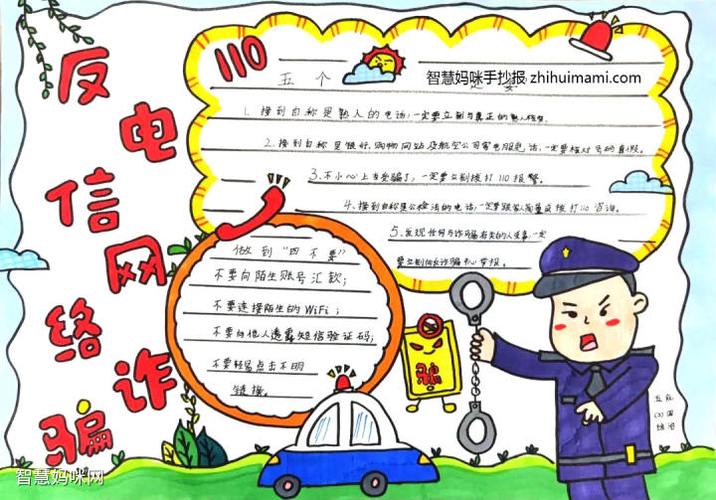 反电信网络诈骗
110
五个
智慧妈咪手抄报·zhihuimami.com
1、接到自称是熟人的电话,一定要立刻与真正的熟人核实。
2、接到自称是银行、购物网站及航空公司客电服电话,一定要核对号码真假。
3、不小心上当受骗了,一定要立刻拨打110报警。
4、接到自称是公检法的电话,一定要跟家人商量或拨打110咨询。
5、发现任何与诈骗有关的人或事,一定
要立刻向反诈骗中心举报。
做到“四不要”
不要向陌生账号汇款;
不要连接陌生的WiFi;
不要向他人透露短信验证码;
不要轻易点击不明
链接。
骗
智慧妈咪网